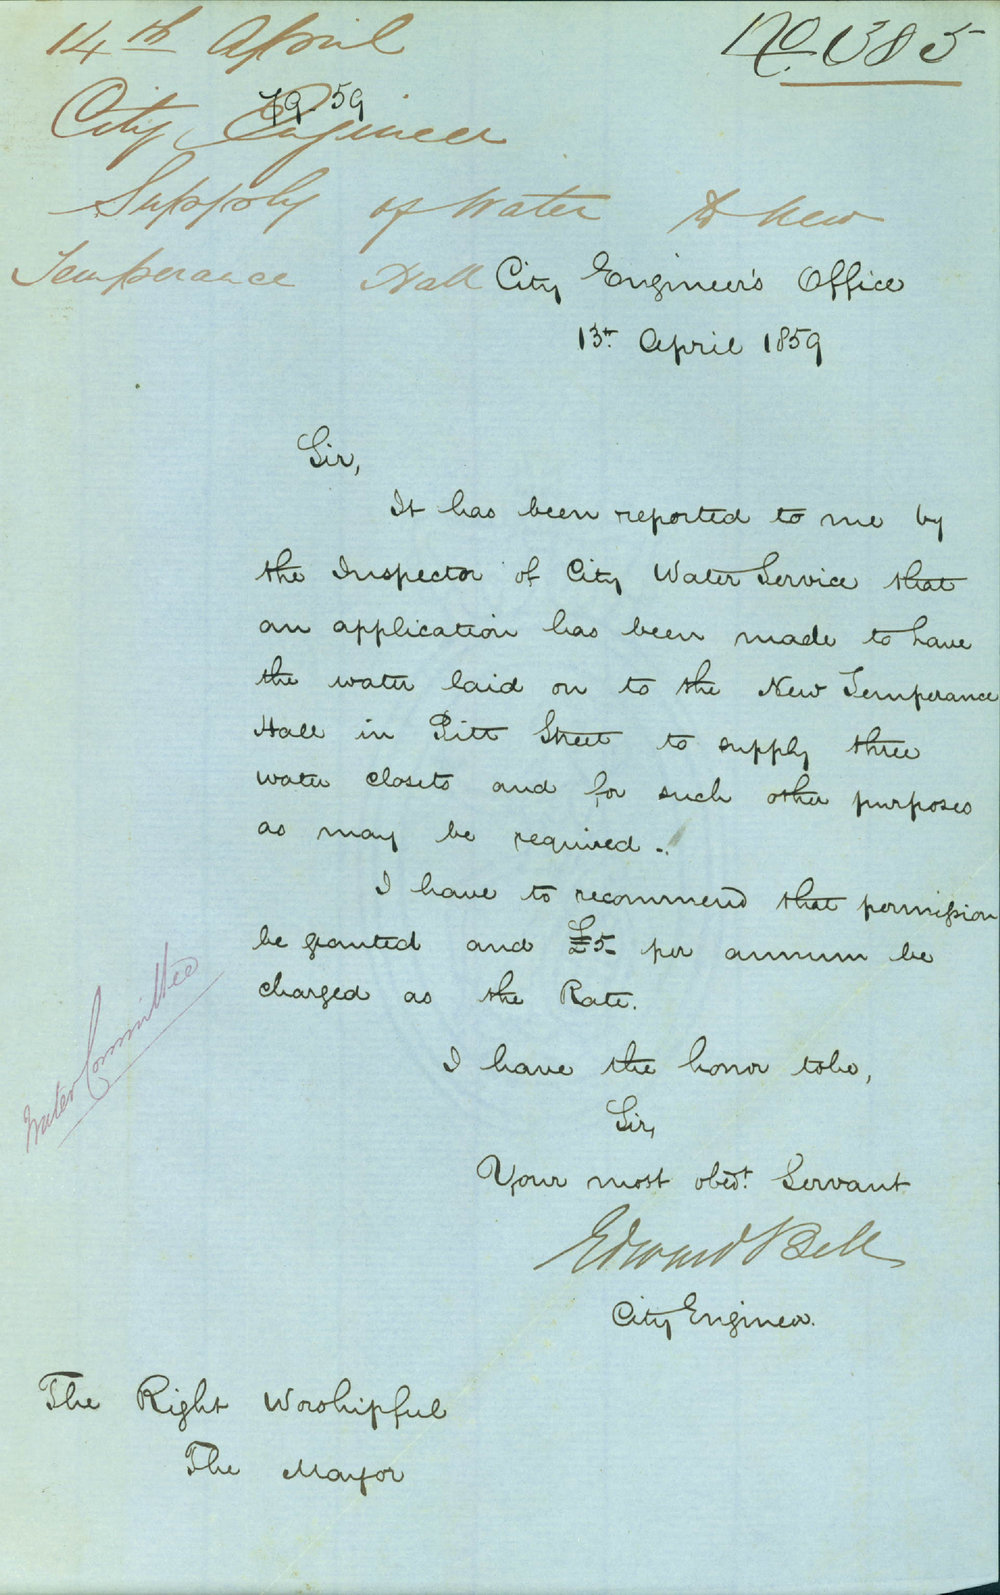 14th April
No. 385
City Engineer
79-59
Supply of Water to New
Temperance Hall
City Engineer's Office
13th April 1859
Sir,
It has been reported to me by
the Inspector of City Water Service that
an application has been made to have
the water laid on to the New Temperance
Hall in Pitt Street to supply three
water closets and for such other purposes
as may be required.
I have to recommend that permission
be granted and £5- per annum be
charged as the Rate.
Water Committee
I have the honor to be,
Sir,
Your most obedt. Servant
Edward Bell
City Engineer.
The Right Worshipful
The Mayor